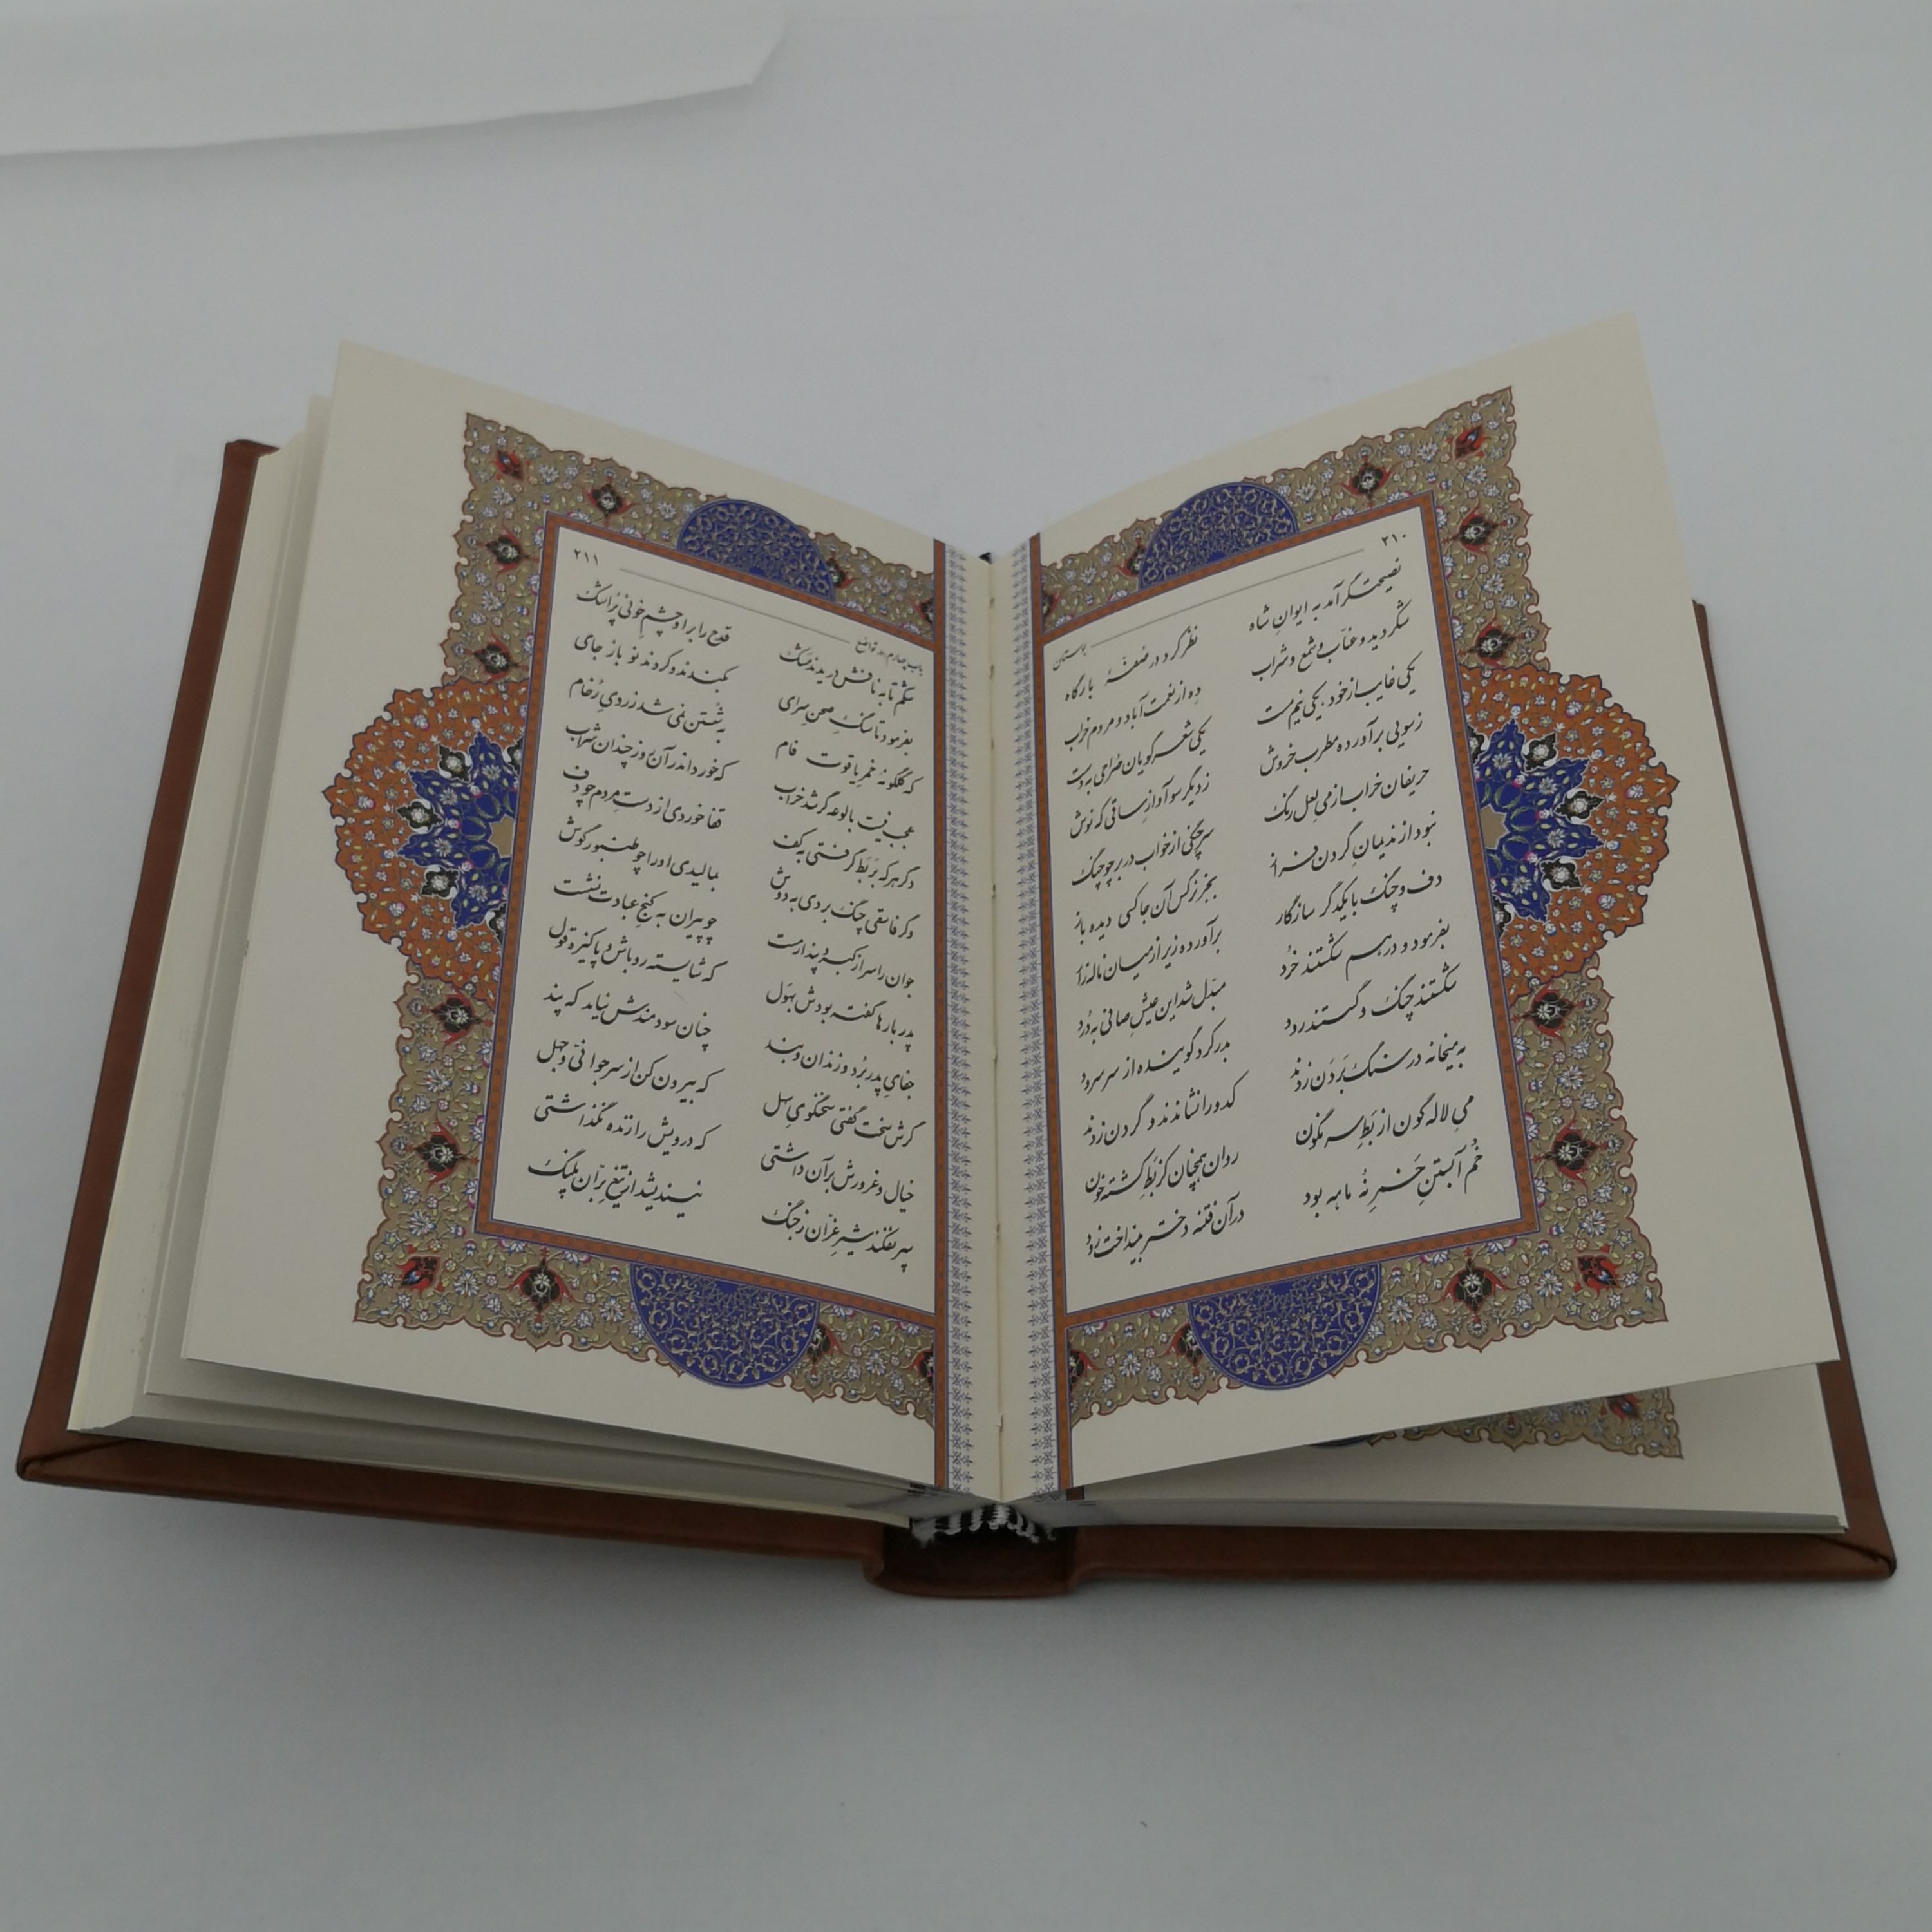 ۲۱۰
بوستان
نصیحتگر آمد به ایوان شاه نظر کرد در صُفّهٔ بارگاه
شکر دید و عنّاب و شمع و شراب ده از نعمت آباد و مردم خراب
یکی غایب از خود، یکی نیم مست یکی شعر گویان صُراحی به دست
ز سویی برآورده مطرب خروش ز دیگر سو آواز ساقی که نوش
حریفان خراب از می لعل رنگ سر چنگی از خواب در بر چو چنگ
نبود از ندیمان گردن فراز بجز نرگس آن جا کسی دیده باز
دف و چنگ با یکدگر سازگار برآورده زیر از میان ناله زار
بفرمود و در هم شکستند خُرد مبدّل شد این عیش صافی به دُرد
شکستند چنگ و گسستند رود بدر کرد گوینده از سر سرود
به میخانه در سنگ بَر دَن زدند کدو را نشاندند و گردن زدند
می لاله گون از بَطِ سرنگون روان همچنان کز بَطِ کشته خون
خُم آبستنِ خَمرِ نُه ماهه بود در آن فتنه دختر بینداخت زود
۲۱۱
باب چهارم در تواضع
شکم تا به نافش دریدند مَشک قدح را بر او چشمِ خونی پُر اشک
بفرمود تا سنگِ صحنِ سرای بکندند و کردند نو باز جای
که گلگونهٔ خمرِ یاقوت فام به شُستن نمی شد ز رویِ رُخام
عجب نیست بالوعه گر شد خراب که خورد اندر آن روز چندان شراب
دگر هر که بَربَط گرفتی به کف قفا خوردی از دستِ مردم چو دف
وگر فاسقی چنگ بردی به دوش بمالیدی او را چو طنبور گوش
جوان را سر از کبر و پندار مست چو پیران به کنجِ عبادت نشست
پدر بارها گفته بودش بهَول که شایسته رو باش و پاکیزه قول
جفایِ پدر بُرد و زندان و بند چنان سودمندش نیامد که پند
گرش سخت گفتی سخنگویِ سهل که بیرون کن از سر جوانیّ و جهل
خیال و غرورش بر آن داشتی که درویش را زنده نگذاشتی
سپر نفکند شیرِ غرّان ز جنگ نیندیشد از تیغِ برّان پلنگ